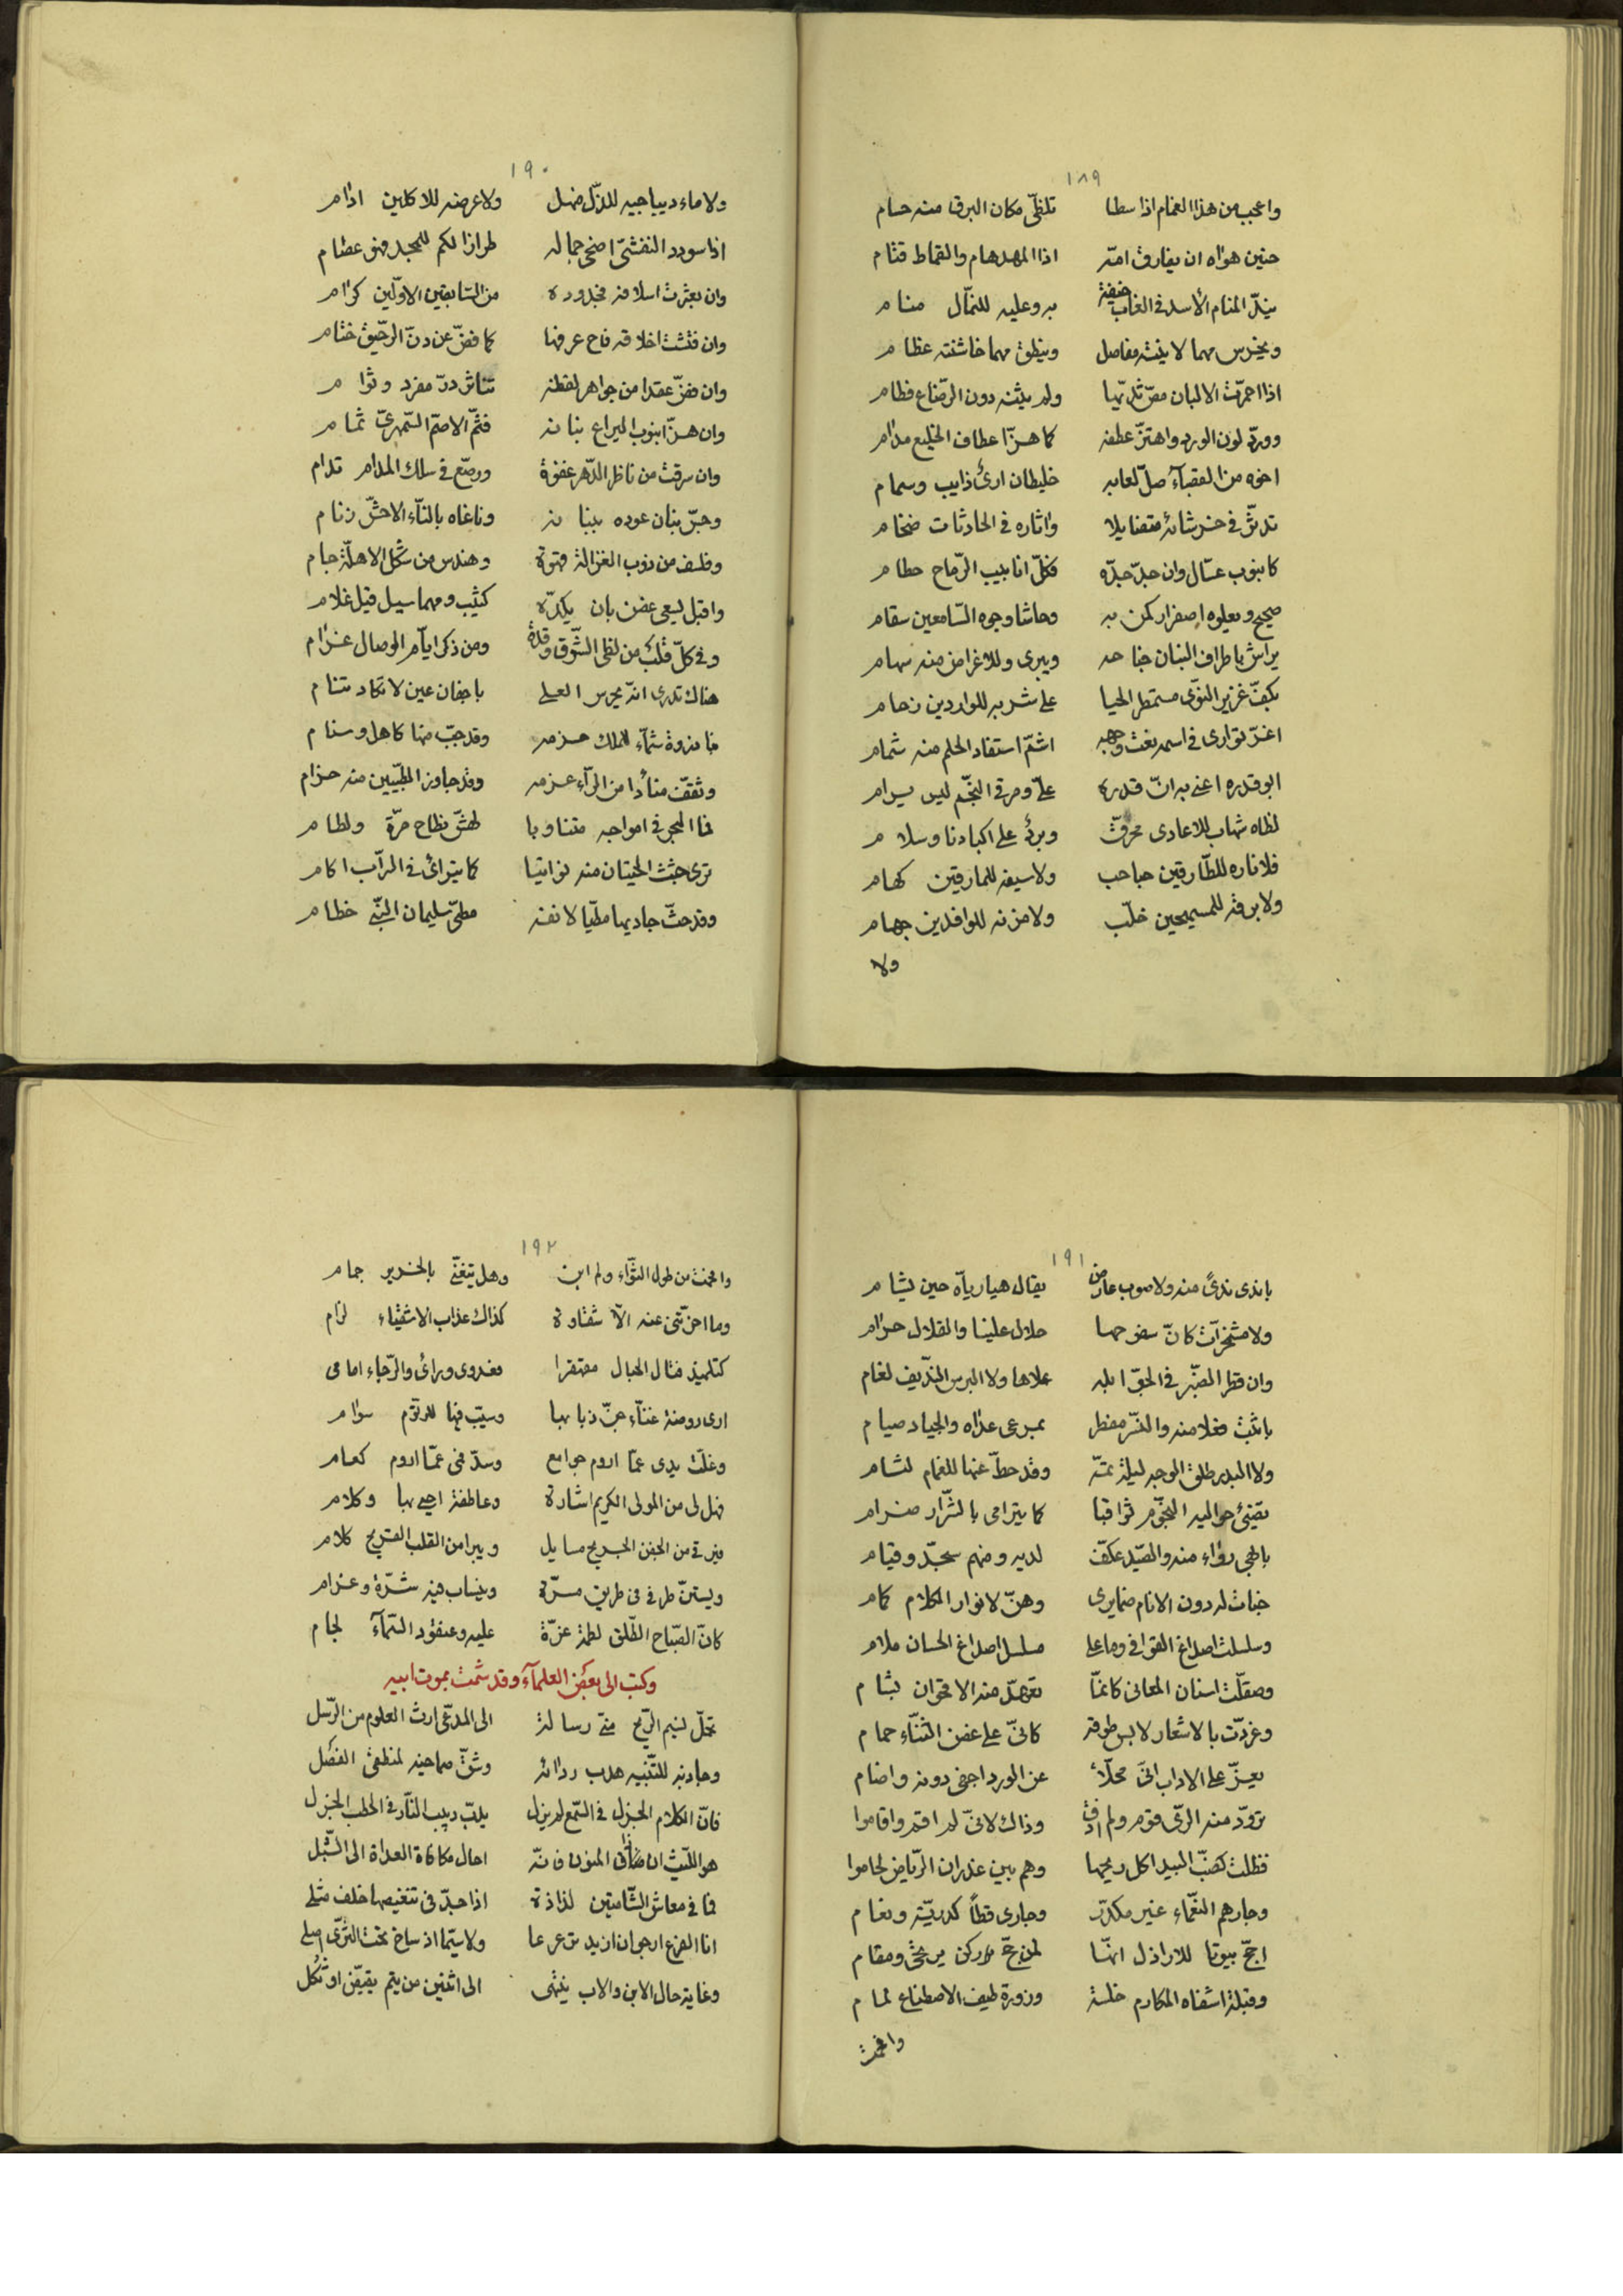 ١٨٩
واعجب من هذا الغمام اذا سطا تلظّى مكان البرق منه حسام
حنين هواه ان يفارق امّه اذا المهدهام والقماط قتام
ينّد المنام الأسد في الغاب خيفة به وعليه للنمّال منام
ويخرس مهما لاينته مفاصل وينطق مهما خاشنته عظام
اذا احمرّت الالبان مصّ ثديّها ولم يثنه دون الرّضاع فطام
وورد لون الورد واهتزّ عطفه كما هزّ اعطاف الخليع مدام
اخوه من القصبآء صلّ لعابه خليطان ارىٌ ذايب وسمام
تدثّر في متضايلا واثاره في الحادثات ضخام
كانبوب عسّال وان جدّ جدّه فكلّ انابيب الرّماح حطام
صحيح ويعلوه اصفرار كمن به وحاشا وجوه السّامعين سقام
يراش باطراف البنان جناحه ويبرى وللاغراض منه سهام
بكفّ غزير النوّى مستمطر الحيا على شربه للواردين زحام
اغرّ توارى في اسمه نعت وجهه اشمّ استفاد الحلم منه شمام
ابو قدره اعني به انّ قدره علّو مرقى النّجم ليس يرام
لظاه شهاب للاعادى محرقّ وبردٌ على اكبادنا وسلام
فلا ناره للطّارقين حباحب ولا سيفه للمارقين كهام
ولا برقه للمستميحين خلّب ولا مزنه للوافدين جهام
ولا
١٩٠
ولا ماء ديباجيه للذّل منهل ولا عرضه للاكلين ادام
اذا سودد النفس اضحى جماله طرازا لكم للمجد فهو عظام
وان بعثرت اسلافه فجدوده من السّابقين الاوّلين كرام
وان فتشت اخلاقه فاح عرفها كما فضّ عن دنّ الرّحيق ختام
وان فضّ عقدا من جواهر لفظه تناثر درّ مفرد وتوام
وان هزّ انبوب اليراع بنانه فثمّ الاصمّ السّمهرىّ ثمام
وان سرقت من ناظر الدّهر غفوة ورصّع في سلك المدام ندام
وجسّ بنان عوده ببنانه وناغاه بالنآء الاحشّ زنام
وقلّف من ذوب الغزالة قهوة وهندس من شكل الاهلّة جام
واقبل يسعى غصن بان يكدّه كثيب ومهما سيل قيل غلام
وفي كلّ قلب من لظى الشّوق وقدة ومن ذكر ايآم الوصال غرام
هناك تدرى انه يحرس العلى باجفان عين لا تكاد تنام
بنا ندوة شمّآء للملك حزمه وقد جبّ منها كاهل وسنام
وثقفّ منأدا من الرآء عزمه وقد جاوز الطبّيين منه حزام
فما البحر في امواجه متناوبا لهنّ نطاح مرّة ولطام
ترى جثث الحيتان منه نواتيا كما يتراى في السّراب اكام
وقد حثّ حاديها مطّيا لانفه مطىّ سليمان النبّى خطام
١٩١
باندى ندىً منه ولا صوب عارض يقال هيا ريآه حين يشام
ولا مشمخرّات كانّ سفوحها حلال علينا والقلال حرام
وان قطر الصّبّر في الجوّ ابله علاها ولا البرس النّديف لغام
باثبت فعلا منه والنسّر مفطر بمرعى عداه والجياد صيام
ولا البدر طلق الوجه ليلة تمّه وقد حطّ عنها للغمام لثام
تضىء حواليه النّجوم ثواقبا كما يترامى بالشّرار ضرام
بابهى رواء منه والصّيد عكفّ لديه ومنهم سجّد وقيام
خبات له دون الانام ضمايرى وهنّ لانوار الكلام كمام
وسلسلت اصداغ القوافي وما على مسلسل اصداغ الحسان ملام
وصقّلت اسنان المعانى كانّما تعهّد منه الاقحوان بشام
وغرّدت بالاشعار لابس طوقه كانّى على غصن الثّنآء حمام
يعزّ على الاداب انّى محلّأ عن الورد اجفى دونه واضام
تروّد منه الرىّ قوم ولم اذق وذاك لانّى لم اقم واقاموا
فظلت كضبّ البيد اكل ريحها وهم بين غدران الرّياض لحاموا
وجارهم النعّماء غير مكدّر وجارى قطاً كدريّة ونعام
احجّ بيوتا للاراذل انمّا لمن حجّ مرمى ومقام
وقبلة اشفاه المكارم خلسة وزورة طيف الاصطناع لمام
واغمت
١٩٢
واغمت من طول الثّواء ولم ابن وهل يتغنّى بالخدير جمام
وما اخّرتنى عنه الاّ شقاوة كذاك عذاب الاشقياء لزام
كتلميذ فتال الحبال مقتفرا فعدوى ورائ والرّجاء امامى
ارى روضة غنآء جنّ ذبابها وسيّب فيها للرتوّم سوام
وغلّت يدى عمّا اروم جوامع وسدّ فمى عمّا اروم كعام
فهل لى من المولى الكريم اشارة وعاطفة احيى بها وكلام
فيرقى من الجفن الجريح مسايل ويبرا من القلب القريح كلام
ويستنّ طرفى فى طريق مسرّة وينساب فيه شرّة وعرام
كانّ الصّباح الطّلق لطمة غرّة عليه وعنقود السّمآء لجام
وكتب الى بعض العلمآء وقد شمت بموت ابيه
تحمّل نسيم الرّيح منّى رسالة الى المدّعى ارث العلوم من الرّسل
وجاذبه للتّنبيه هدب ردائه وشقّ صماخيه لمنطقى الفصل
فانّ الكلام الجزل في السّمع لم يزل يدبّ دبيب النّار في الحطب الجزل
هو اللّيث ان ذاق المنون فانّه احال مكافاة العداة الى الشّبل
فما في معاش الشّامتين لذاذة اذا جدّ فى تنغيصها خلف مثلى
انا الفرع ارجو ان ازيد ترعرعا ولا سيّما اذ ساخ تحت الثرّى اصلى
وغاية حال الابن والاب ينتهى الى اثنين من يتم يقيّض او ثكل